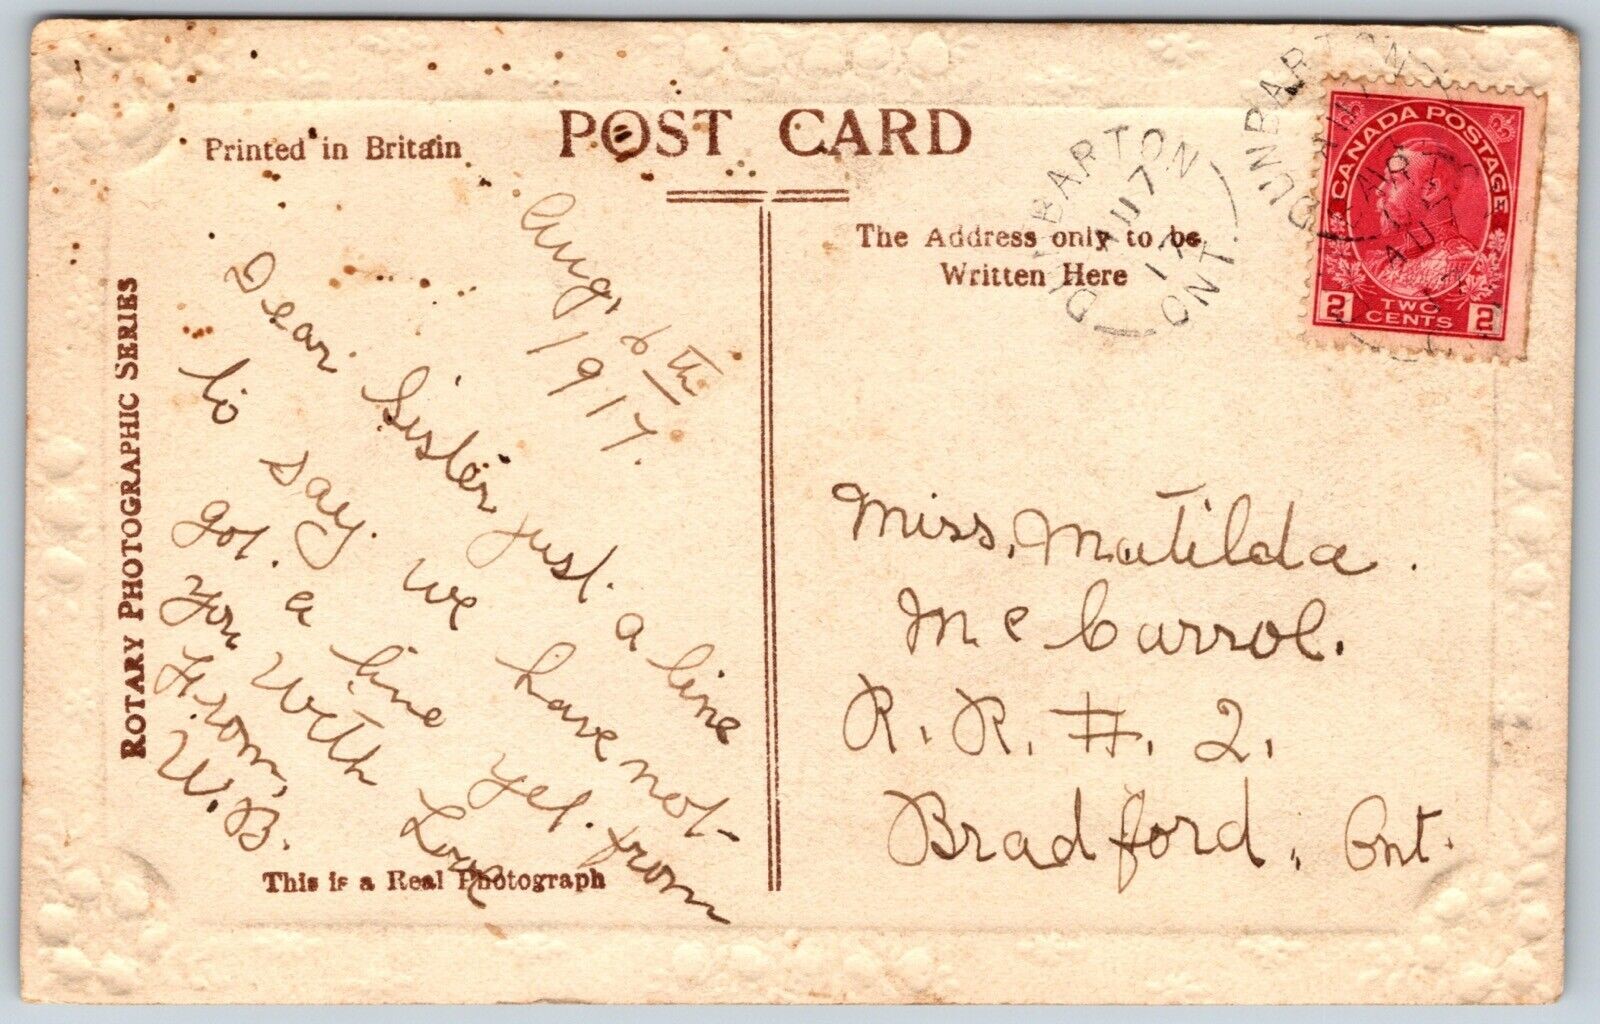 POST CARD
Printed in Britain
The Address only to be
Written Here
ROTARY PHOTOGRAPHIC SERIES
This is a Real Photograph
Aug, 6th
1917.
Dear Sister, just. a line
to say. we have not-
got. a line yet. from
you With Love
From,
W.B.
Miss, Matilda.
Mc Carrol.
R. R. #. 2.
Bradford, Ont.
DUNBARTON
AU 7
17
ONT.
DUNBARTON
CANADA POSTAGE
2 TWO CENTS 2